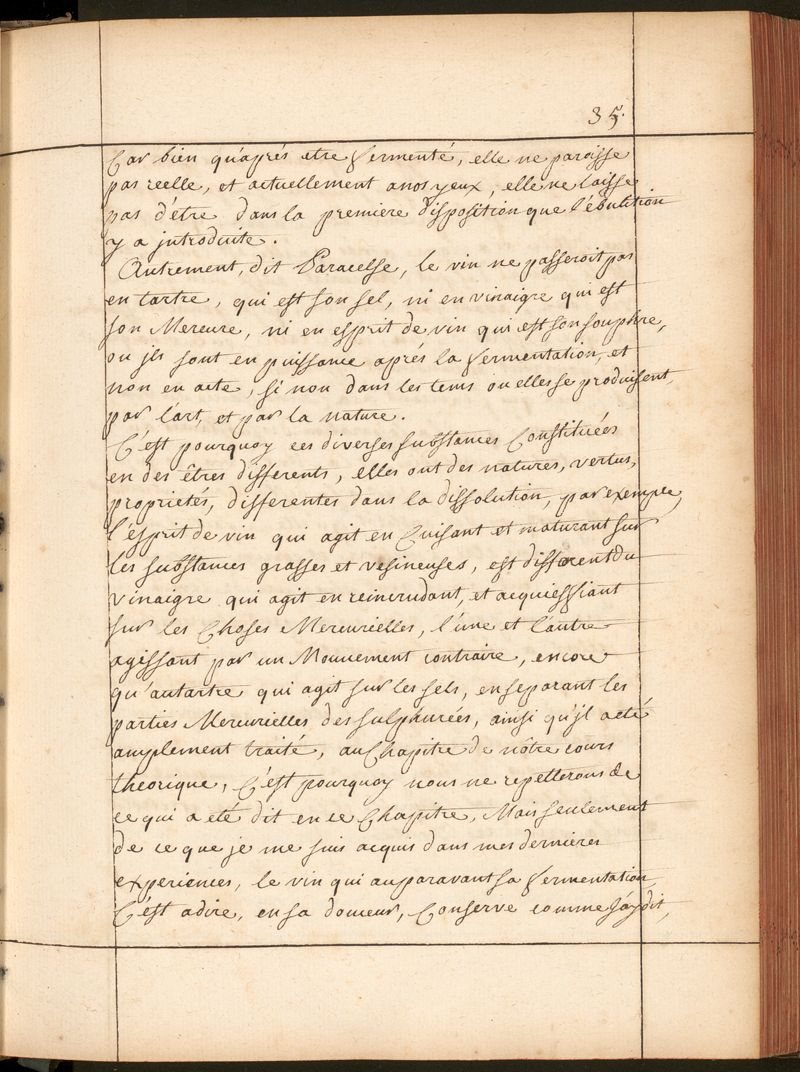 35.
Car bien qu'aprés etre fermenté, elle ne paroisse
pas reelle, et actuellement a nos yeux, elle ne laisse
pas d'être dans la premiere disposition que l'ébulition
y a jntroduite.
Autrement, dit Paracelse, le vin ne passeroit pas
en tartre, qui est son sel, ni en vinaigre qui est
son Mercure, ni en esprit de vin qui est son souphre,
ou jls sont en puissance aprés la fermentation, et
non en acte, si non dans les tems ou elles se produisent,
par l'art, et par la nature.
C'est pourquoy ces diverses substances Constituées
en des êtres differents, elles ont des natures, vertus,
proprietés, differentes dans la dissolution, par exemple,
l'ésprit de vin qui agit en Cuisant et maturant sur
les substances grasses et resineuses, est different du
vinaigre qui agit en reincrudant, et acquiessiant
sur les Choses Mercurielles, l'une et l'autre
agissant par un Mouuement contraire, encore
qu'autartre qui agit sur les sels, en separant les
parties Mercurielles des sulphurées, ainsi qu'jl a eté
amplement traité, au Chapitre de nôtre cours
theorique, C'est pourquoy nous ne repetterons de
ce qui a eté dit en ce Chapitre, Mais seulement
de ce que je me suis acquis dans mes dernieres
experiences, le vin qui auparavant sa fermentation,
C'ést adire, en sa douceur, Conserve comme j'áy dit,